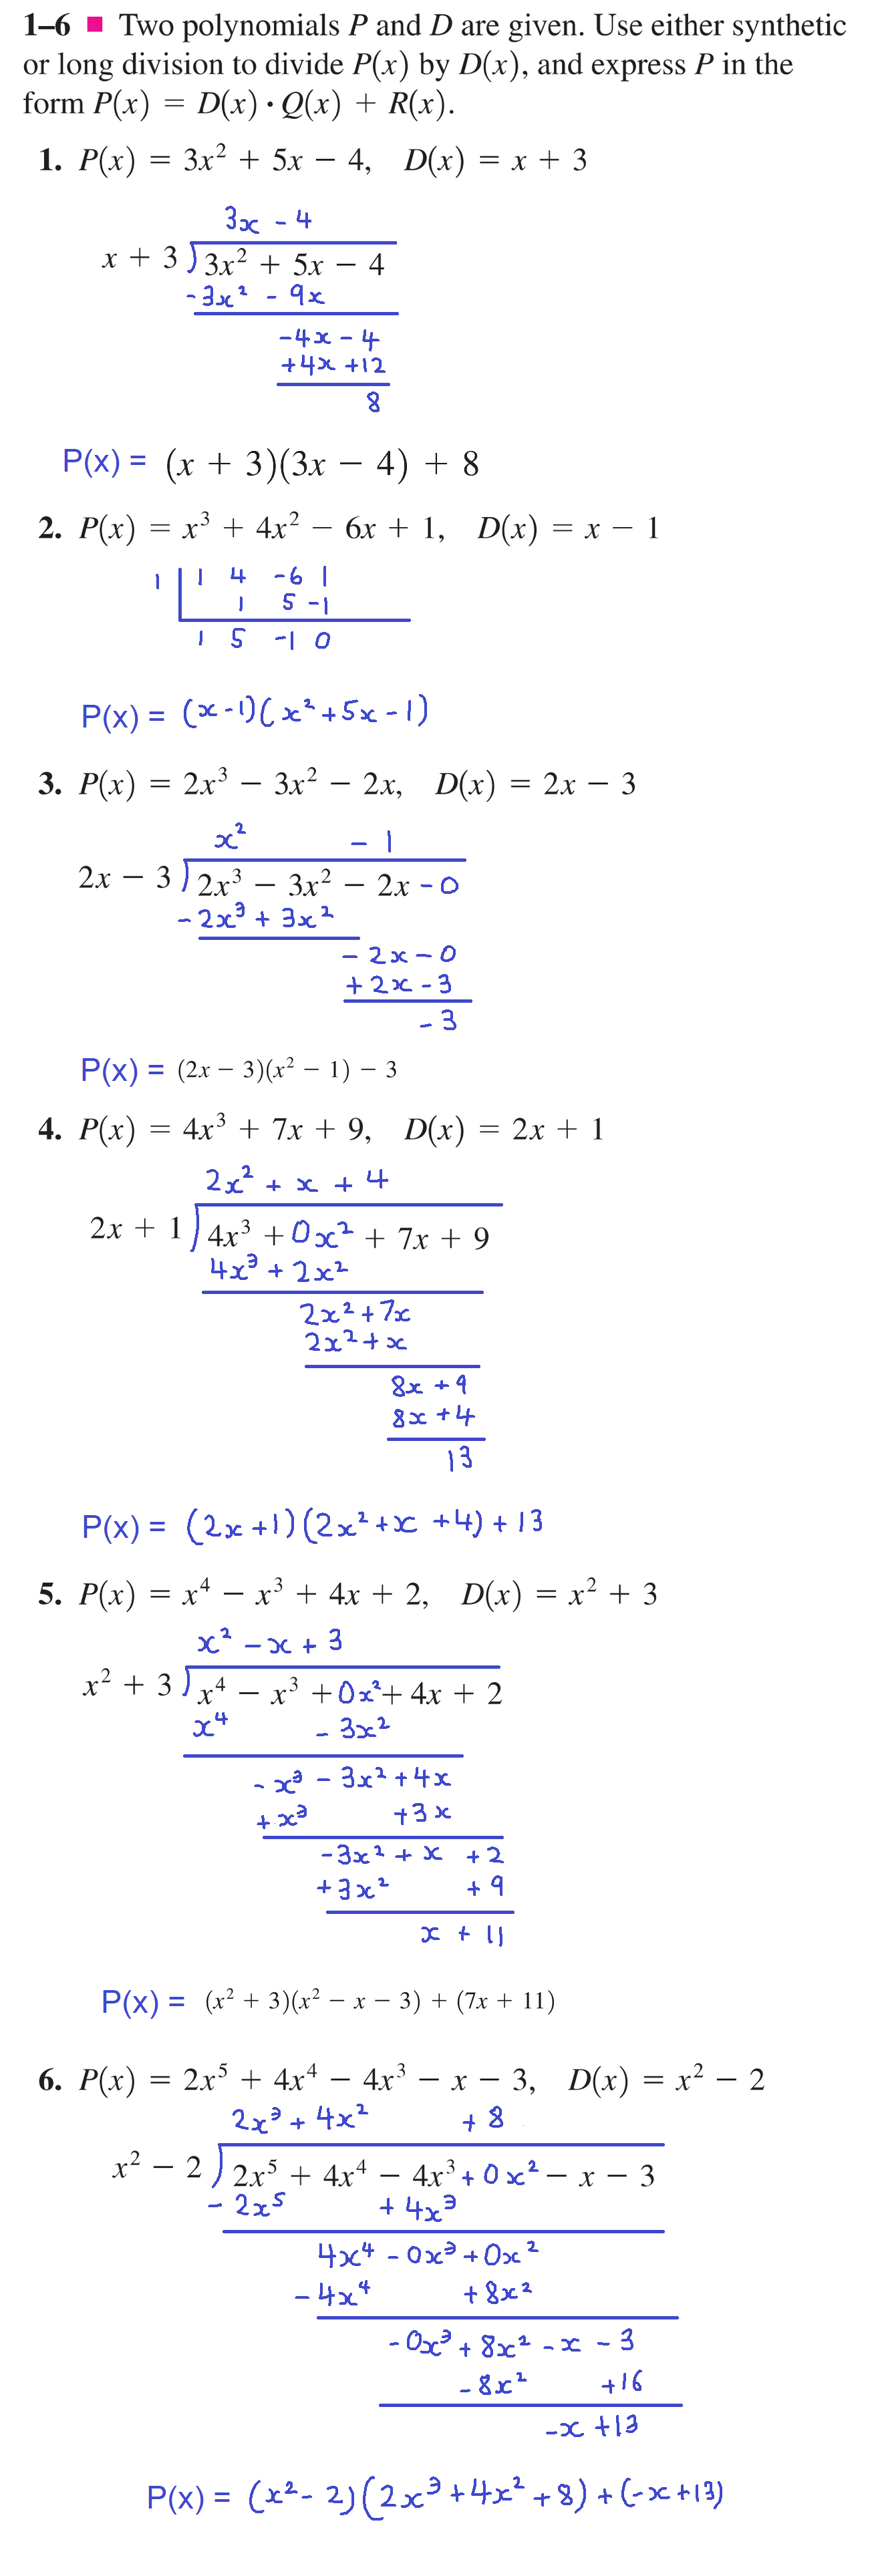 1–6 ■ Two polynomials P and D are given. Use either synthetic
or long division to divide P(x) by D(x), and express P in the
form P(x) = D(x) · Q(x) + R(x).
1. P(x) = 3x² + 5x − 4, D(x) = x + 3
3x - 4
x + 3 ) 3x² + 5x − 4
-3x² - 9x
-4x - 4
+4x +12
8
P(x) = (x + 3)(3x − 4) + 8
2. P(x) = x³ + 4x² − 6x + 1, D(x) = x − 1
1 | 1 4 -6 1
1 5 -1
1 5 -1 0
P(x) = (x-1)(x²+5x-1)
3. P(x) = 2x³ − 3x² − 2x, D(x) = 2x − 3
x² - 1
2x − 3 ) 2x³ − 3x² − 2x - 0
-2x³ + 3x²
- 2x - 0
+ 2x - 3
- 3
P(x) = (2x − 3)(x² − 1) − 3
4. P(x) = 4x³ + 7x + 9, D(x) = 2x + 1
2x² + x + 4
2x + 1 ) 4x³ + 0x² + 7x + 9
4x³ + 2x²
2x² + 7x
2x² + x
8x + 9
8x + 4
13
P(x) = (2x +1)(2x² + x + 4) + 13
5. P(x) = x⁴ − x³ + 4x + 2, D(x) = x² + 3
x² - x + 3
x² + 3 ) x⁴ − x³ + 0x² + 4x + 2
x⁴ - 3x²
- x³ - 3x² + 4x
+ x³ + 3x
-3x² + x + 2
+3x² + 9
x + 11
P(x) = (x² + 3)(x² − x − 3) + (7x + 11)
6. P(x) = 2x⁵ + 4x⁴ − 4x³ − x − 3, D(x) = x² − 2
2x³ + 4x² + 8
x² − 2 ) 2x⁵ + 4x⁴ − 4x³ + 0x² − x − 3
- 2x⁵ + 4x³
4x⁴ - 0x³ + 0x²
- 4x⁴ + 8x²
- 0x³ + 8x² - x - 3
- 8x² + 16
-x + 13
P(x) = (x² - 2)(2x³ + 4x² + 8) + (-x + 13)